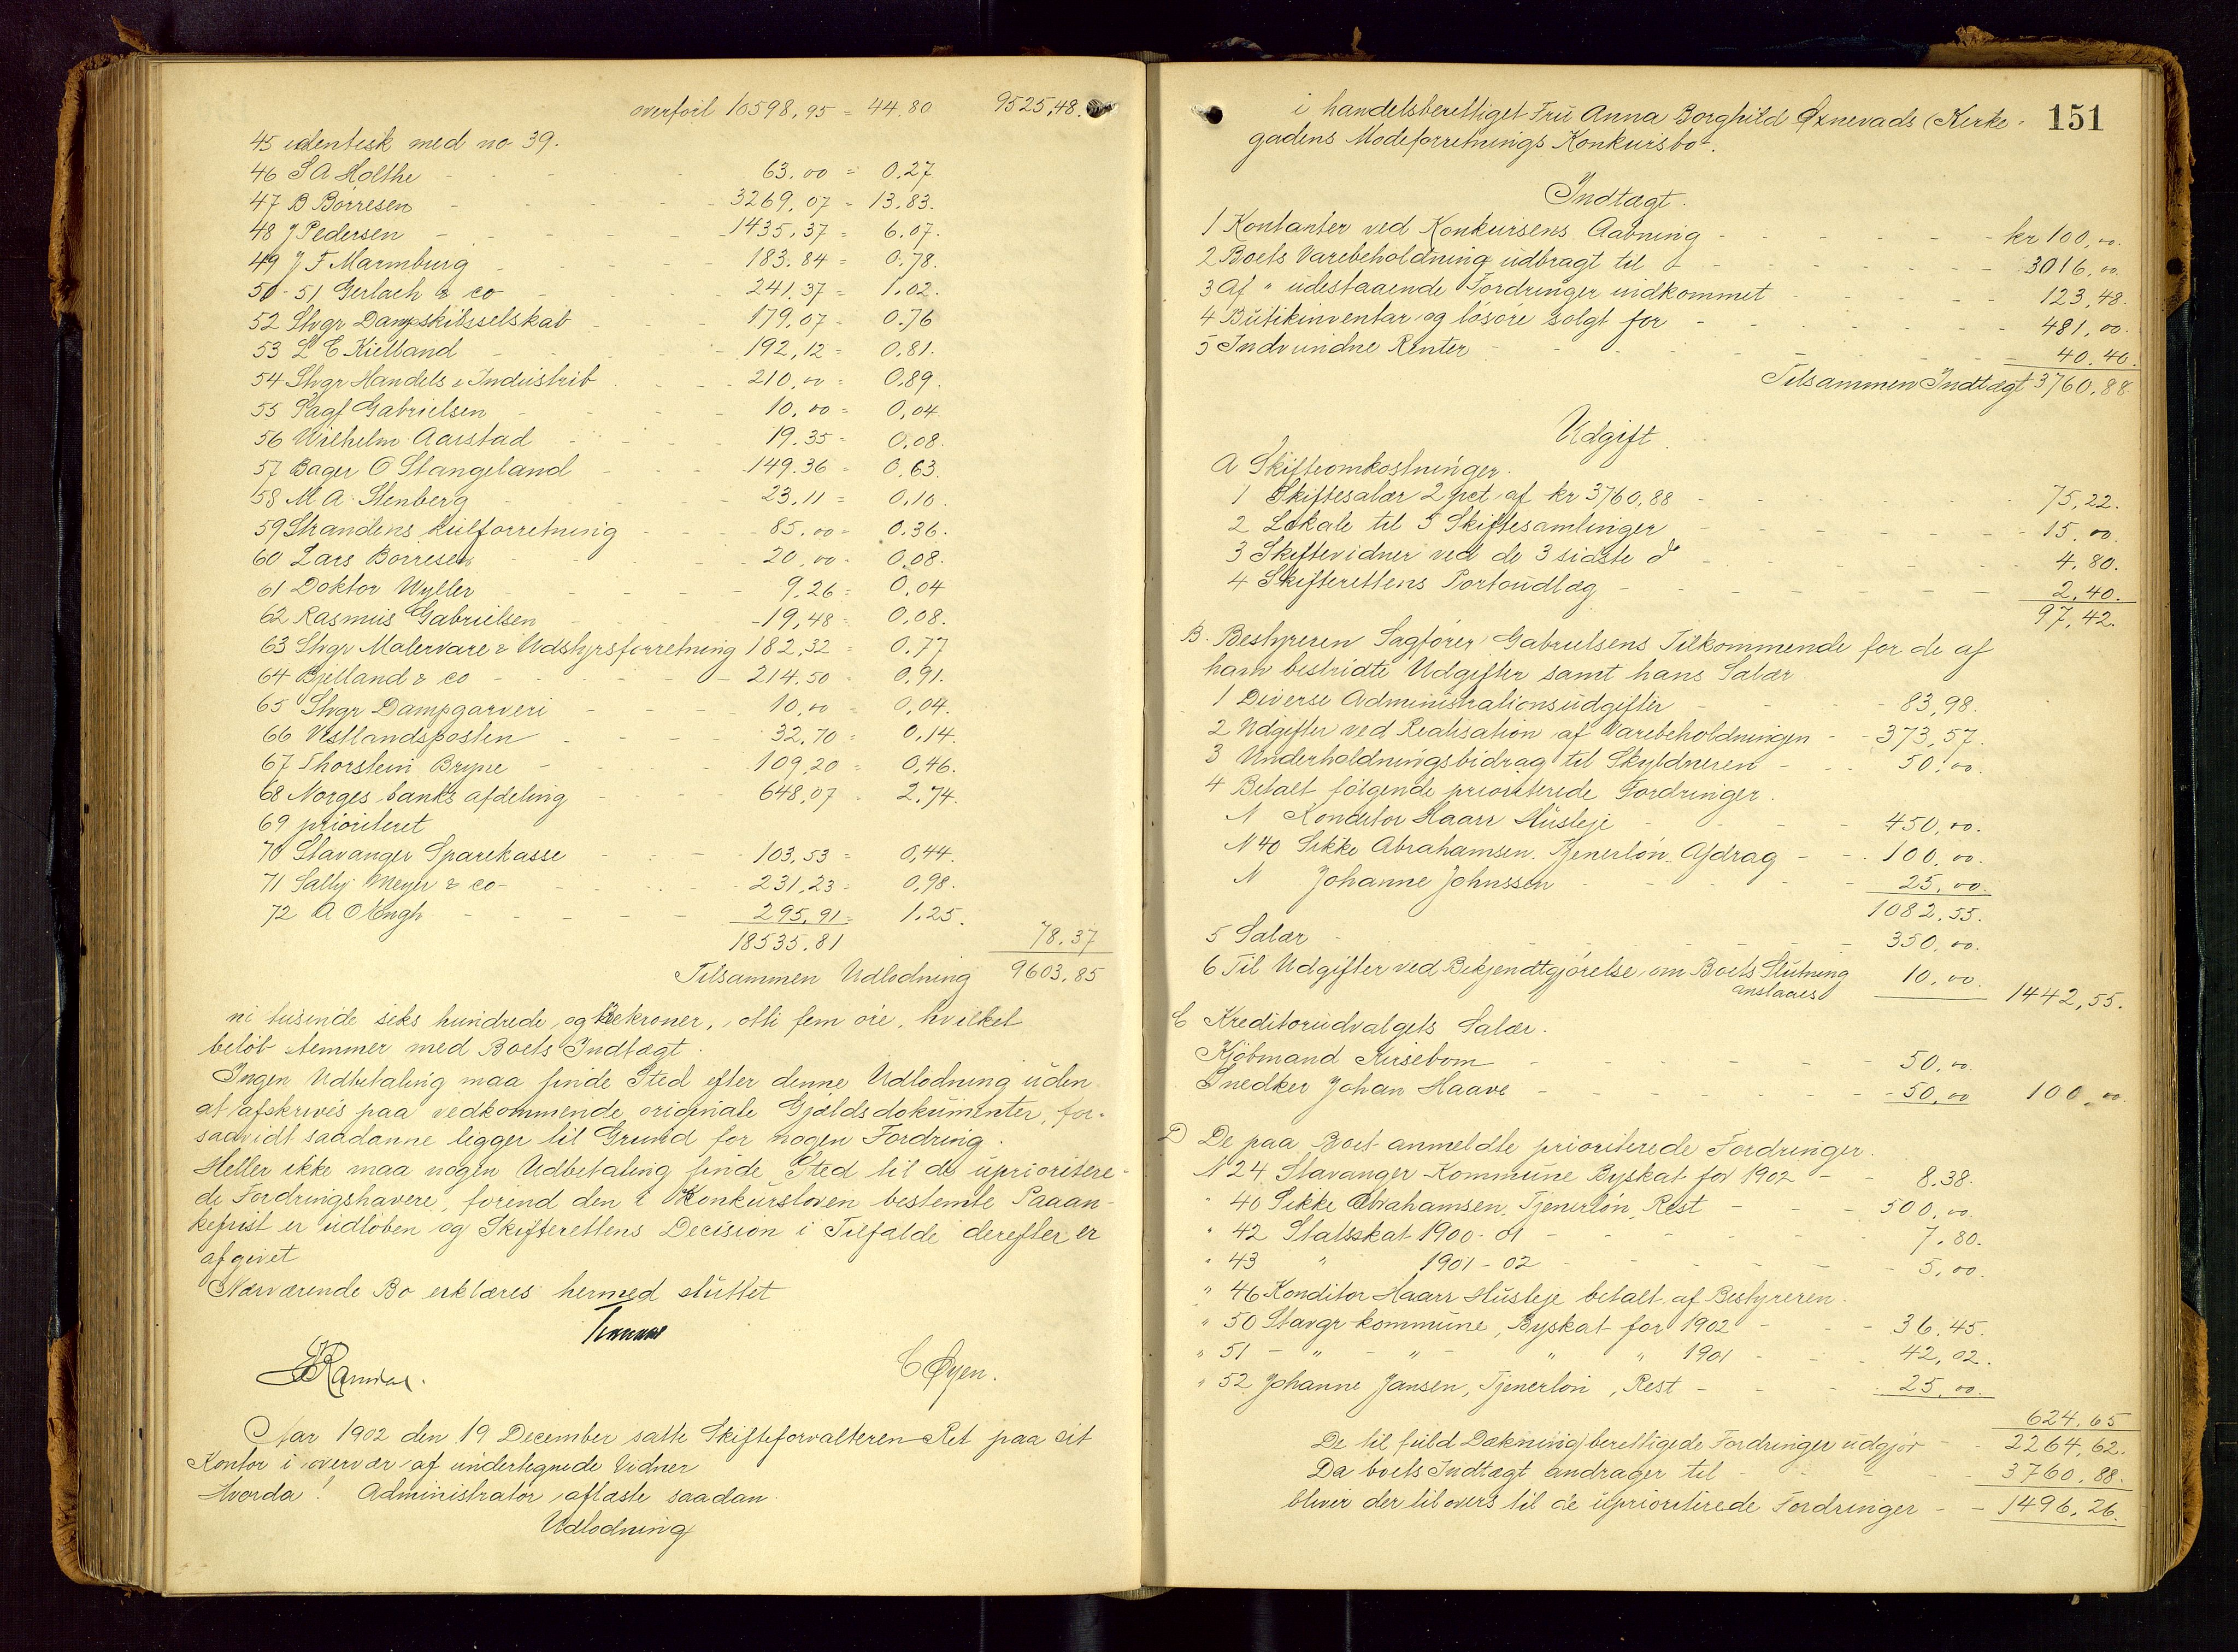 overført 10598,95 = 44.80 9525,48.
45 identisk med no 39.
46 S A Holthe - - - - 63.00 = 0.27
47 B Børresen - - - - 3269,07 = 13.83.
48 J Pedersen - - - - 1435,37 = 6.07.
49 J F Marmburg - - - 183.84 = 0.78.
50-51 Gerlach & co - - - 241.37 = 1.02.
52 Stvgr Dampskibsselskab - - 179,07 = 0.76
53 L E Kielland - - - 192,12 = 0,81.
54 Stvgr Handels & Industrib - - 210,00 = 0,89.
55 Sagf Gabrielsen - - - 10,00 = 0,04.
56 Wilhelm Aarstad - - - 19.35 = 0,08.
57 Bager O Stangeland - - - 149.36 = 0,63.
58 M. A. Stenberg - - - 23,11 = 0,10.
59 Strandens Kulforretning - - - 85,00 = 0.36.
60 Lars Børresen - - - 20,00 = 0.08.
61 Doktor Wyller - - - 9,26 = 0,04
62 Rasmus Gabrielsen - - - 19,48 = 0,08.
63 Stvgr Malervare & Udstyrsforretning 182,32 = 0.77
64 Bjelland & co - - - 214.50 = 0,91.
65 Stvgr Dampgarveri - - - 10,00 = 0,04.
66 Vestlandsposten - - - 32,70 = 0,14.
67 Thorstein Bryne - - - 109,20 = 0,46.
68 Norges banks afdeling - - - 648,07 = 2,74.
69 prioriteret
70 Stavanger Sparekasse - - - 103,53 = 0,44.
71 Sally Meyer & co - - - 231,23 = 0,98.
72 A O Kngh - - - 295,91 = 1.25.
18535.81 78.37
Tilsammen Udlodning 9603,85
ni tusinde seks hundrede og tre kroner, otti fem øre, hvilket
beløb stemmer med Boets Indtægt.
Ingen Udbetaling maa finde Sted efter denne Udlodning uden
at afskrives paa vedkommende originale Gjældsdokumenter, for-
saavidt saadanne ligger til Grund for nogen Fordring.
Heller ikke maa nogen Udbetaling finde Sted til de uprioritere-
de Fordringshavere, forend den i Konkursloven bestemte Paaan-
kefrist er udløben og Skifterettens Decision i Tilfælde derefter er
afgivet
Nærværende Bo erklæres hermed sluttet
C Øyen.
Aar 1902 den 19 December satte Skifteforvalteren Ret paa sit
Kontor i overvær af undertegnede Vidner
Hvorda! Administrator aflæste saadan
Udlodning
151
i handelsberettiget Fru Anna Borghild Øxnevads (Kirke-
gadens Modeforretnings Konkursbo.
Indtægt.
1 Kontanter ved Konkursens Aabning - - - kr 100,00.
2 Boets Varebeholdning udbragt til - - - 3016,00.
3 Af " udestaaende Fordringer indkommet - - - 123,48.
4 Butikinventar og løsøre solgt for - - - 481,00.
5 Indvundne Renter - - - 40.40.
Tilsammen Indtægt 3760,88
Udgift.
A Skifteomkostninger.
1 Skiftesalær 2 pct af kr 3760,88 - - - 75,22.
2 Lokale til 5 Skiftesamlinger - - - 15.00.
3 Skiftevidner ved de 3 sidste do - - - 4,80.
4 Skifterettens Portoudlæg - - - 2,40.
97,42.
B. Bestyreren Sagfører Gabrielsens Tilkommende for de af
ham bestridte Udgifter samt hans Salær
1 Diverse Administrationsudgifter - - 83,98.
2 Udgifter ved Realisation af Varebeholdningen - - 373,57.
3 Underholdningsbidrag til Skyldneren - - 50,00.
4 Betalt følgende prioriterede Fordringer.
N Konditor Haarr Husleje - - - 450,00.
N 40 Sikke Abrahamsen. Tjenerløn. Afdrag - - 100,00.
N Johanne Johnssen - - - 25,00.
1082,55.
5 Salær - - - 350,00.
6 Til Udgifter ved Bekjendtgjørelse om Boets Slutning
anslaaes 10,00. 1442,55.
C Kreditorudvalgets Salær.
Kjøbmand Kirsebom - - - 50,00.
Snedker Johan Haave - - - 50,00 100,00.
D De paa Boet anmeldte prioriterede Fordringer.
N 24 Stavanger Kommune Byskat for 1902 - - 8.38.
" 40 Sikke Abrahamsen, Tjenerløn, Rest - - 500,00.
" 42 Statsskat 1900-01 - - - 7,80.
" 43 " 1901-02 - - - 5,00.
" 46 Konditor Haarr Husleje betalt af Bestyreren.
" 50 Stavgr kommune, Byskat for 1902 - - 36.45.
" 51 - " - " - " " 1901 - - 42,02.
" 52 Johanne Jansen, Tjenerløn, Rest - - - 25,00.
624.65
De til fuld Dækning berettigede Fordringer udgjør - - 2264,62.
Da boets Indtægt andrager til - - - 3760.88.
bliver der tilovers til de uprioriterede Fordringer - - 1496,26.